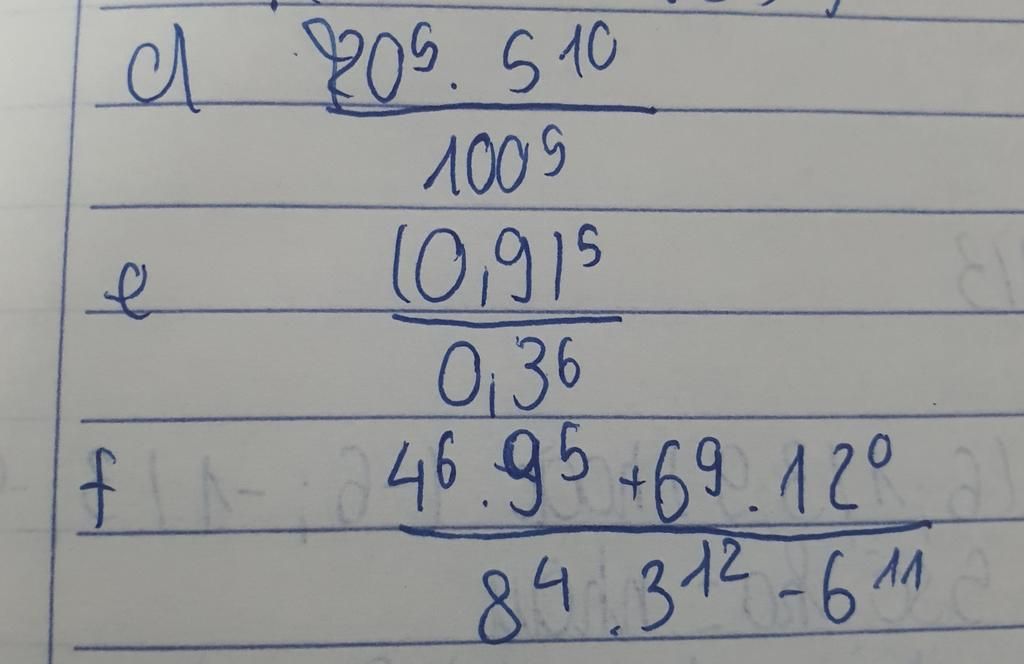 d 20⁵ . 5¹⁰
100⁵
e (0,9)⁵
0,3⁶
f 4⁶ . 9⁵ + 6⁹ . 12⁰
8⁴ . 3¹² - 6¹¹